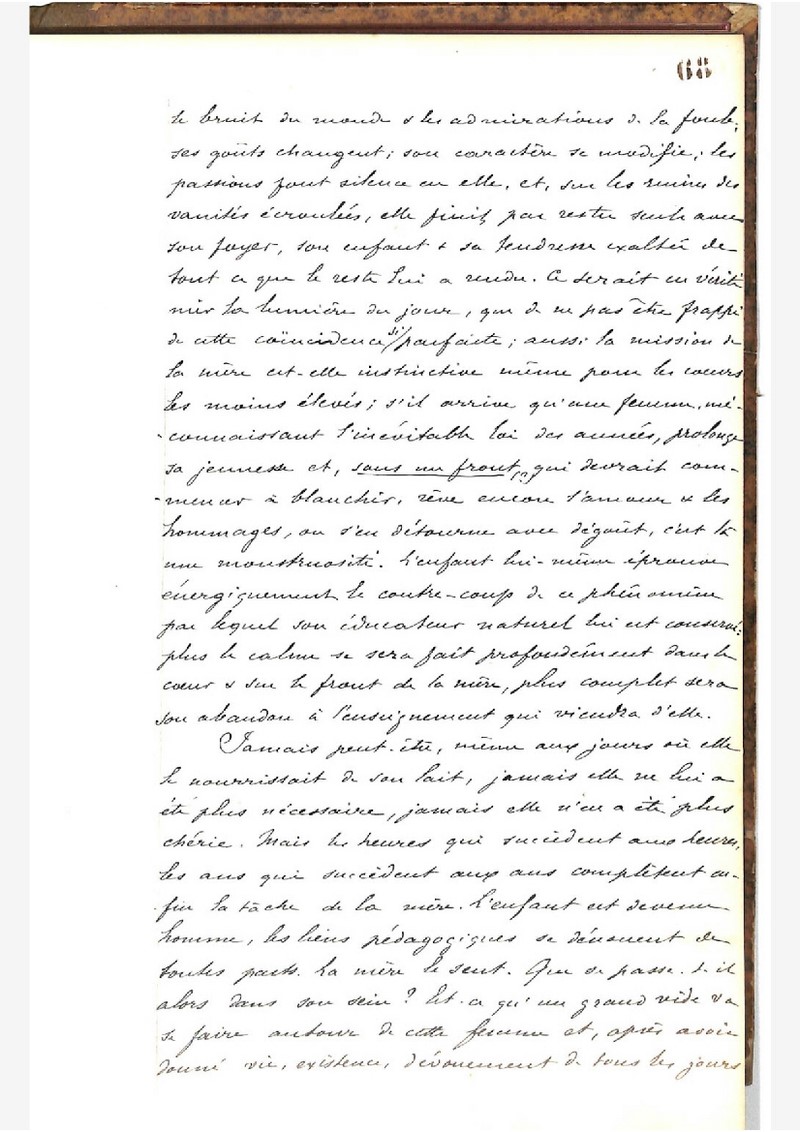 68
le bruit du monde & les admirations de la foule;
ses goûts changent; son caractère se modifie; les
passions font silence en elle, et, sur les ruines des
vanités écroulées, elle finit par rester seule avec
son foyer, son enfant & sa tendresse exaltée de
tout ce que le reste lui a rendu. Ce serait en vérité
nier la lumière du jour, que de ne pas être frappé
de cette coïncidence si parfaite; aussi la mission de
la mère est-elle instinctive même pour les cœurs
les moins élevés; s'il arrive qu'une femme, mé-
-connaissant l'inévitable loi des années, prolonge
sa jeunesse et, sous un front, qui devrait com-
-mencer à blanchir, rêve encore l'amour & les
hommages, on s'en détourne avec dégoût, c'est là
une monstruosité. L'enfant lui-même éprouve
énergiquement le contre-coup de ce phénomène
par lequel son éducateur naturel lui est conservé:
plus le calme se sera fait profondément dans le
cœur & sur le front de la mère, plus complet sera
son abandon à l'enseignement qui viendra d'elle.
Jamais peut-être, même aux jours où elle
le nourrissait de son lait, jamais elle ne lui a
été plus nécessaire, jamais elle n'en a été plus
chérie. Mais les heures qui succèdent aux heures,
les ans qui succèdent aux ans complètent en-
-fin la tâche de la mère. L'enfant est devenu
homme, les liens pédagogiques se dénouent de
toutes parts. La mère le sent. Que se passe-t-il
alors dans son sein? Est-ce qu'un grand vide va
se faire autour de cette femme et, après avoir
donné vie, existence, dévouement de tous les jours